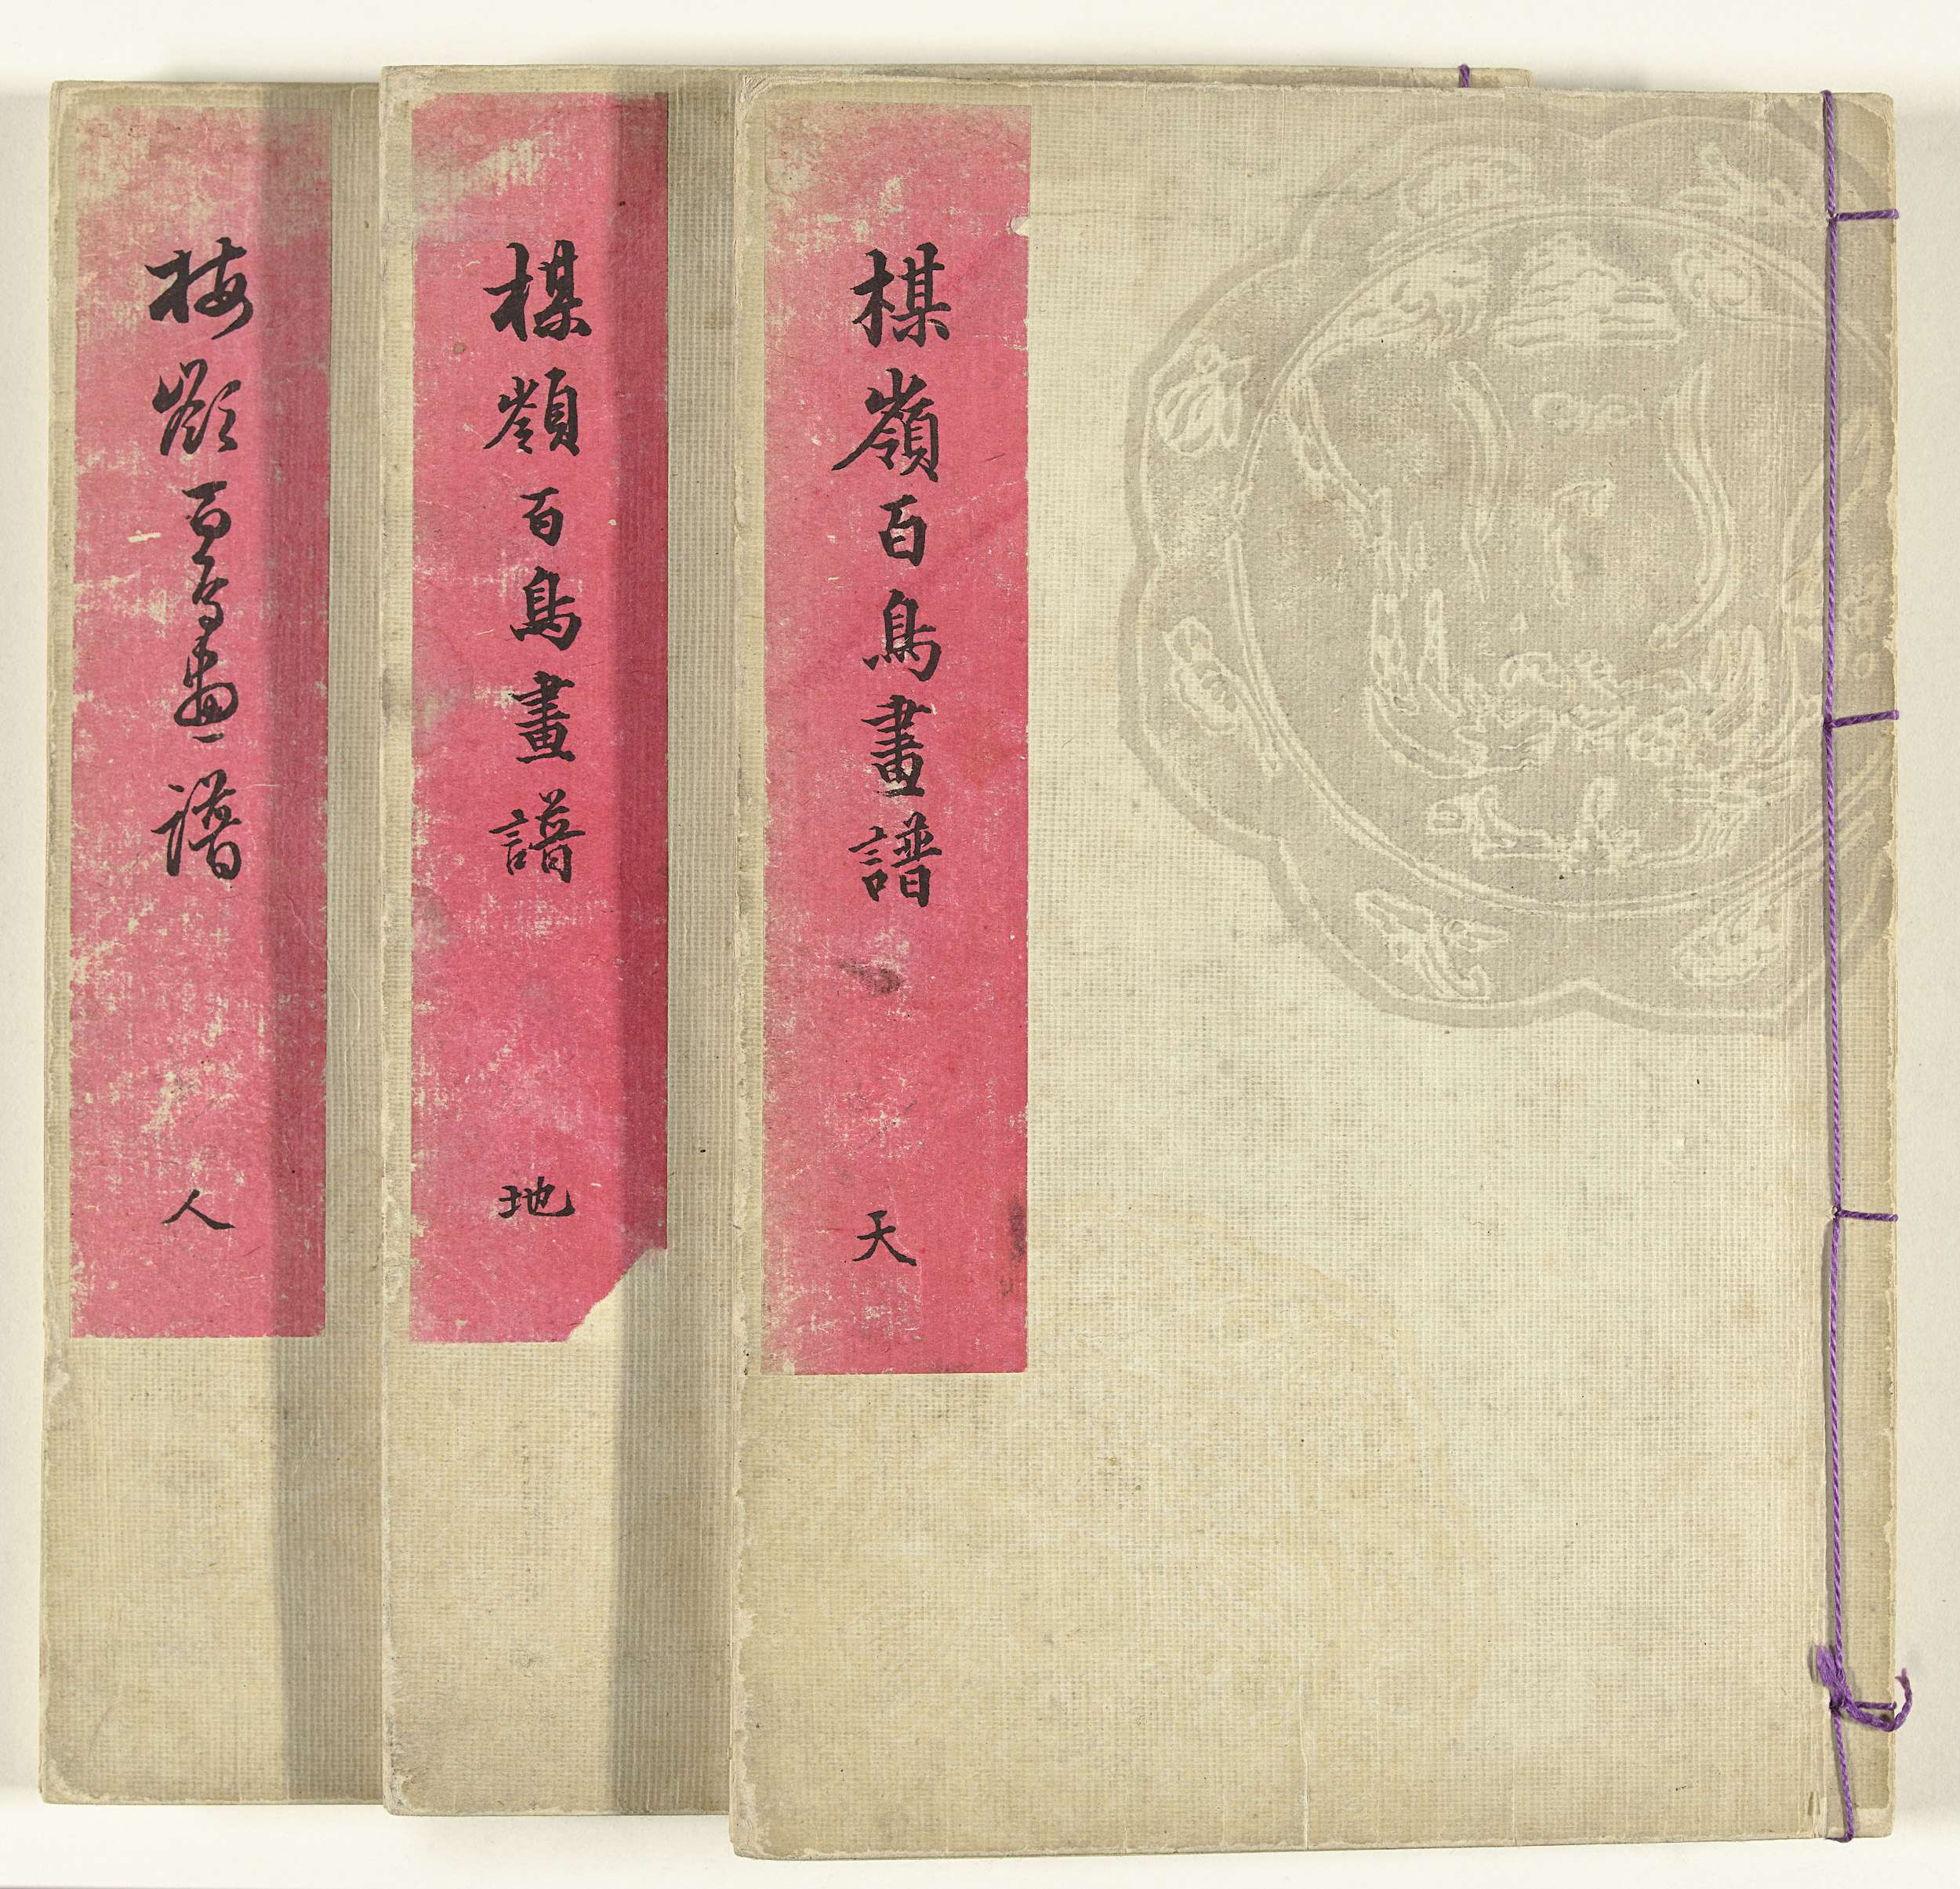 楳嶺百鳥畫譜 天
楳嶺百鳥畫譜 地
梅嶺百鳥畫譜 人